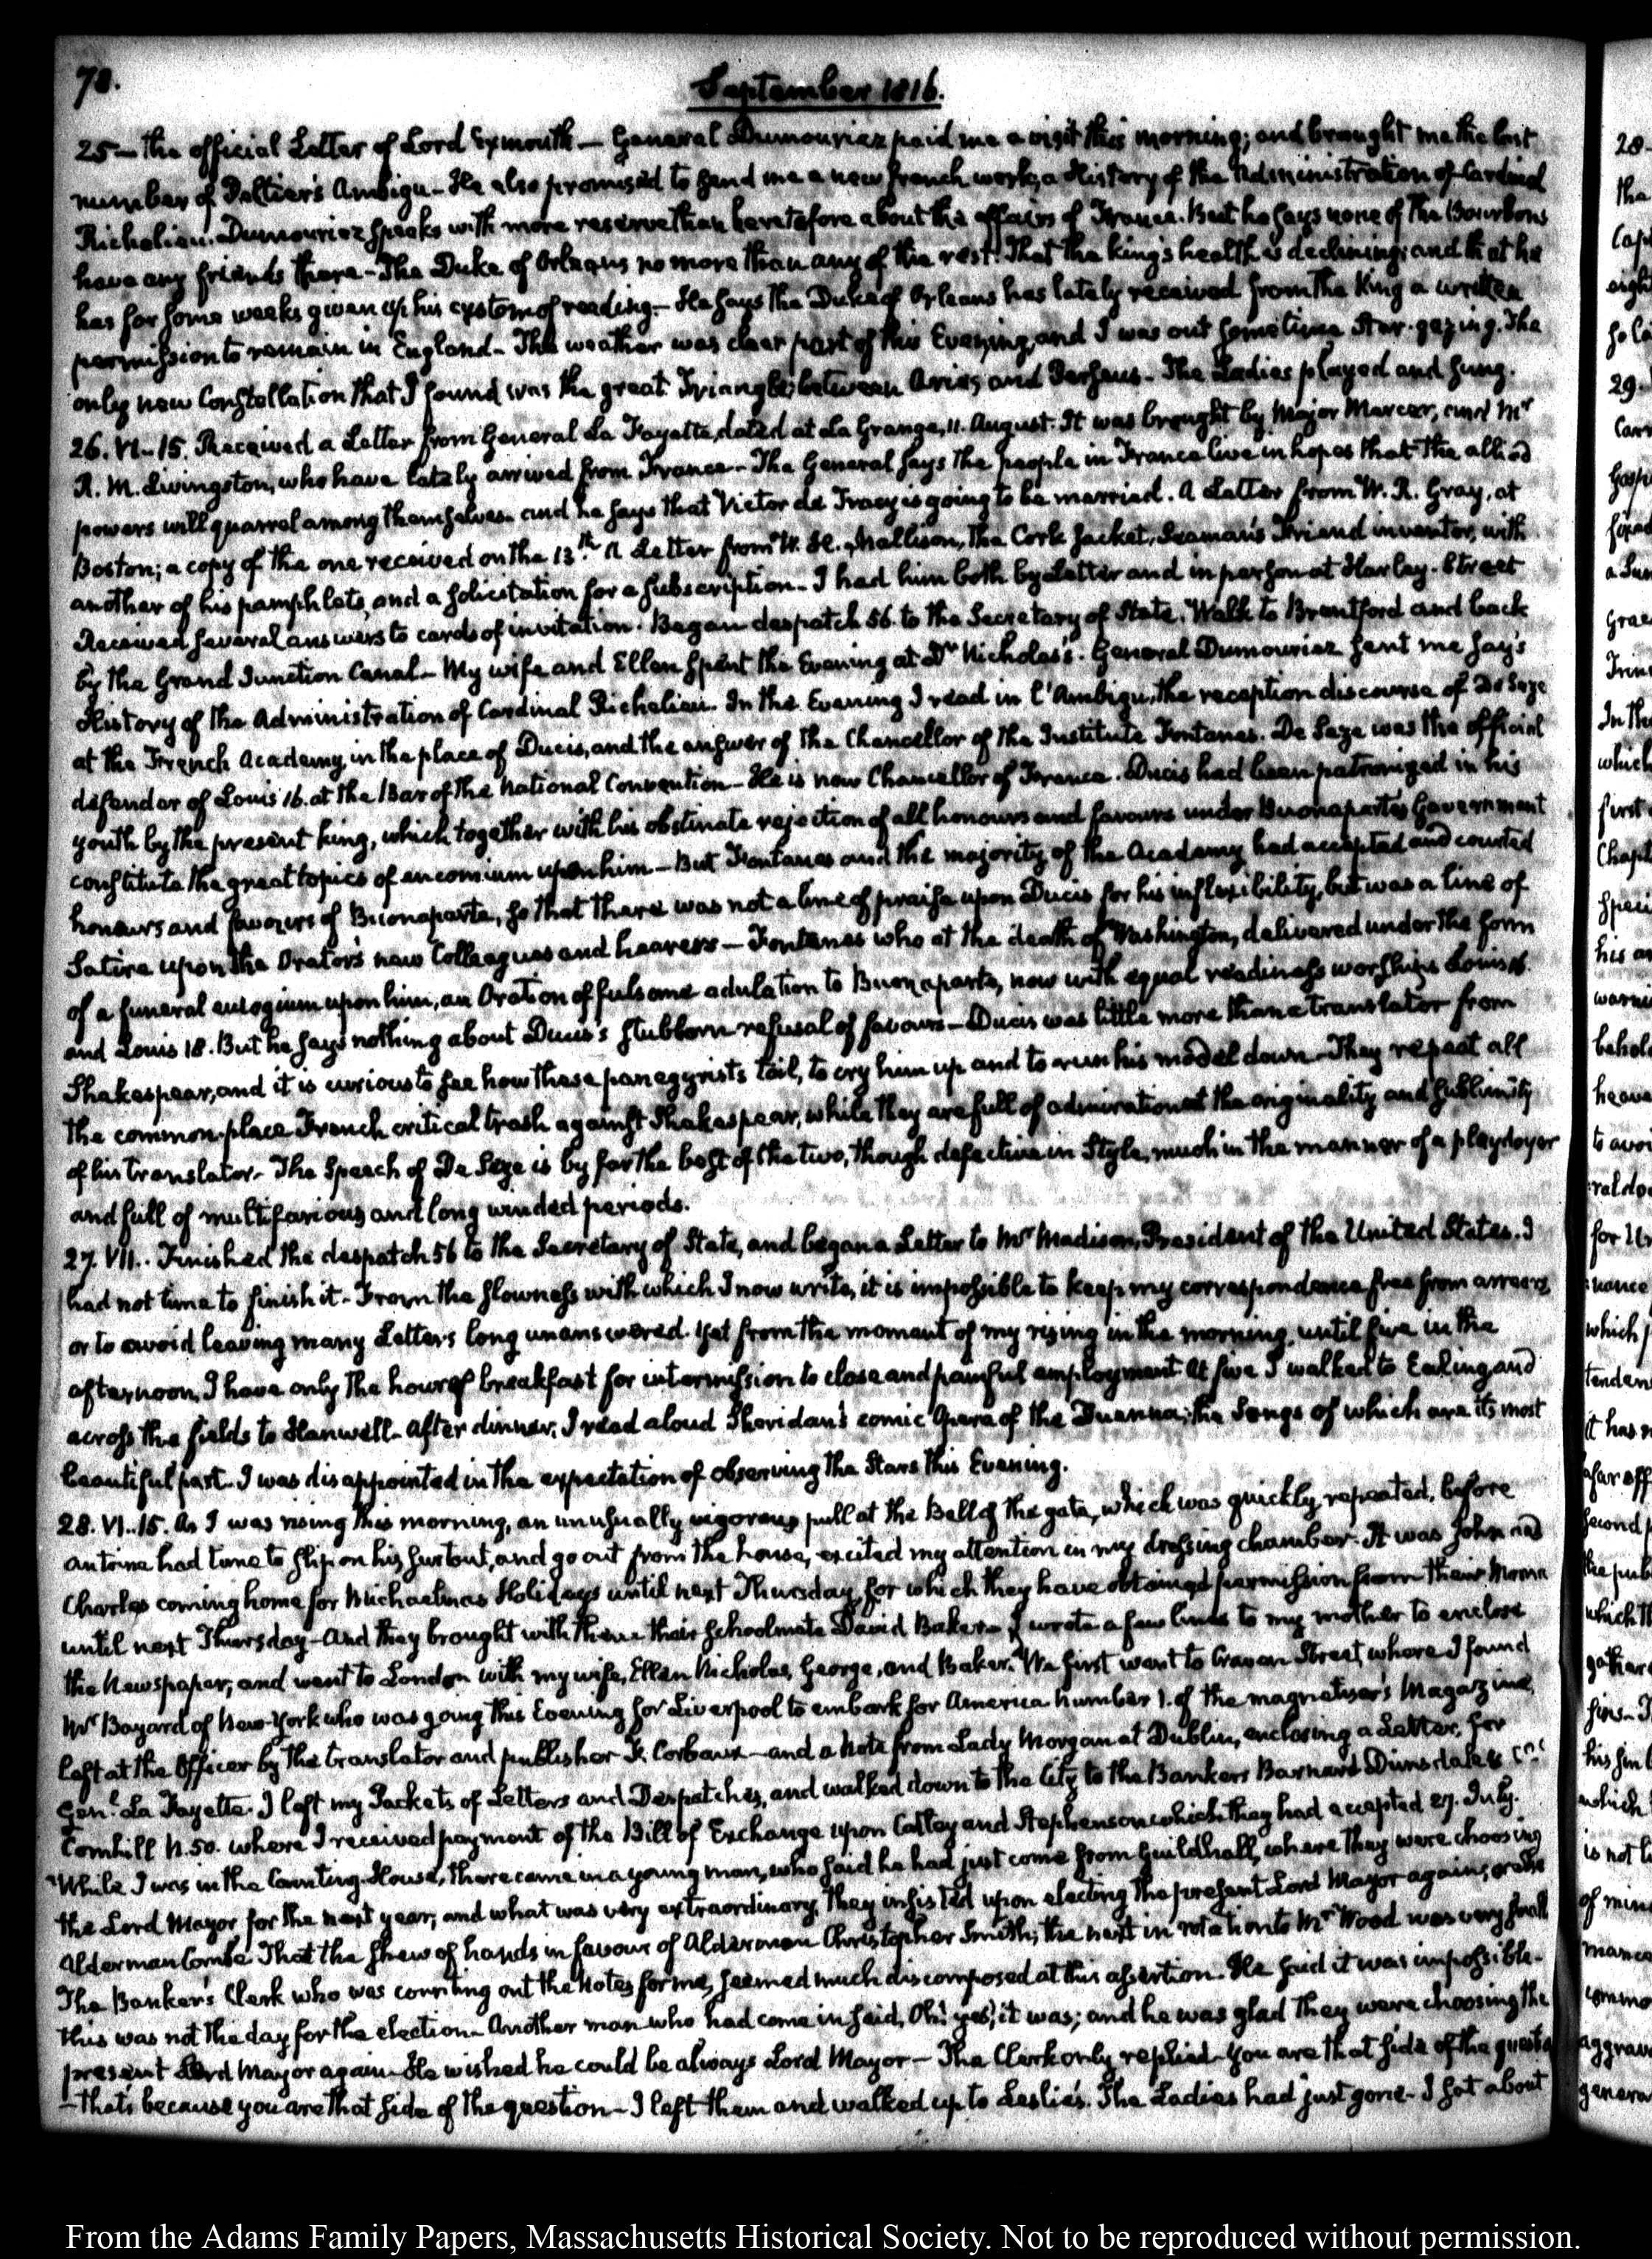 78.
September 1816.
25 — the official Letter of Lord Exmouth — General Dumouriez paid me a visit this morning; and brought me the last
number of Peltier's Ambigu - He also promised to send me a new french work, a History of the Administration of Cardinal
Richelieu. Dumouriez speaks with more reserve than heretofore about the affairs of France. But he says none of the Bourbons
have any friends there - The Duke of Orleans no more than any of the rest. That the king's health is declining; and that he
has for some weeks given up his custom of reading. - He says the Duke of Orleans has lately received from the King a written
permission to remain in England - The weather was clear part of this Evening, and I was out sometime Star-gazing. The
only new Constellation that I found was the great Triangle; between Aries and Perseus - The Ladies played and sung.
26. VI-15. Received a Letter from General La Fayette, dated at La Grange, 11. August. It was brought by Major Mercer, and Mr
R. M. Livingston, who have lately arrived from France - The General says the people in France live in hopes that the allied
powers will quarrel among themselves and he says that Victor de Tracy is going to be married. A Letter from W. R. Gray, at
Boston; a copy of the one received on the 13th. A Letter from W. H. Mallison, the Cork Jacket, Seaman's Friend inventor, with
another of his pamphlets, and a solicitation for a subscription - I had him both by Letter and in person at Harley-Street
Received several answers to cards of invitation. Began despatch 56. to the Secretary of State. Walk to Brentford and back
by the Grand Junction Canal - My wife and Ellen spent the Evening at Dr Nicholas's. General Dumouriez sent me Jay's
History of the Administration of Cardinal Richelieu. In the Evening I read in l'Ambigu, the reception discourse of De Seze
at the French Academy, in the place of Ducis, and the answer of the Chancellor of the Institute Fontanes. De Seze was the official
defender of Louis 16. at the Bar of the National Convention - He is now Chancellor of France. Ducis had been patronized in his
youth by the present king, which together with his obstinate rejection of all honours and favours under Buonaparte's Government
constitute the great topics of encomium upon him - But Fontanes and the majority of the Academy had accepted and courted
honours and favours of Buonaparte, so that there was not a line of praise upon Ducis for his inflexibility, but was a line of
Satire upon the Orator's new Colleagues and hearers - Fontanes who at the death of Washington, delivered under the form
of a funeral eulogium upon him, an Oration of fulsome adulation to Buonaparte, now with equal readiness worships Louis 16.
and Louis 18. But he says nothing about Ducis's stubborn refusal of favours - Ducis was little more than a translator from
Shakespear, and it is curious to see how these panegyrists toil, to cry him up and to run his model down - They repeat all
the common-place French critical trash against Shakespear, while they are full of admiration at the originality and sublimity
of his translator - The Speech of De Seze is by far the best of the two, though defective in Style, much in the manner of a playdoyer
and full of multifarious and long winded periods.
27. VII. Finished the despatch 56 to the Secretary of State, and began a Letter to Mr Madison, President of the United States. I
had not time to finish it - From the slowness with which I now write, it is impossible to keep my correspondence free from arrears,
or to avoid leaving many Letters long unanswered. Yet from the moment of my rising in the morning, until five in the
afternoon, I have only the hour of breakfast for intermission to close and painful employment. At five I walked to Ealing and
across the fields to Hanwell - After dinner, I read aloud Sheridan's comic Opera of the Duenna; the Songs of which are its most
beautiful part. I was disappointed in the expectation of observing the Stars this Evening.
28. VI..15. As I was rising this morning, an unusually vigorous pull at the Bell of the gate, which was quickly repeated, before
Antoine had time to slip on his surtout, and go out from the house, excited my attention in my dressing chamber. It was John and
Charles coming home for Michaelmas Holidays until next Thursday for which they have obtained permission from their Mama
until next Thursday - And they brought with them their schoolmate David Baker - I wrote a few lines to my mother to enclose
the Newspaper; and went to London with my wife, Ellen Nicholas, George, and Baker. We first went to Craven Street, where I found
Mr Bayard of New-York who was going this Evening for Liverpool to embark for America Number 1. of the magnetiser's Magazine,
left at the Officer by the translator and publisher F. Corbaux - and a Note from Lady Morgan at Dublin, enclosing a Letter, for
Genl. La Fayette. I left my Packets of Letters and Despatches, and walked down to the City to the Bankers Barnard Dimsdale & Co.
Cornhill N. 50. where I received payment of the Bill of Exchange upon Cattey and Stephenson which they had accepted 27. July.
While I was in the Counting-House, there came in a young man, who said he had just come from Guildhall, where they were choosing
the Lord Mayor for the next year; and what was very extraordinary, they insisted upon electing the present Lord Mayor again, or else
Alderman Combe. That the shew of hands in favour of Alderman Christopher Smith; the next in rotation to Mr Wood was very small
The Banker's Clerk who was counting out the Notes for me, seemed much discomposed at this assertion. He said it was impossible -
this was not the day for the election - Another man who had come in said, Oh! yes, it was; and he was glad they were choosing the
present Lord Mayor again - He wished he could be always Lord Mayor - The Clerk only replied - you are that side of the question
- that's because you are that side of the question - I left them and walked up to Leslie's. The Ladies had just gone - I sat about
From the Adams Family Papers, Massachusetts Historical Society. Not to be reproduced without permission.